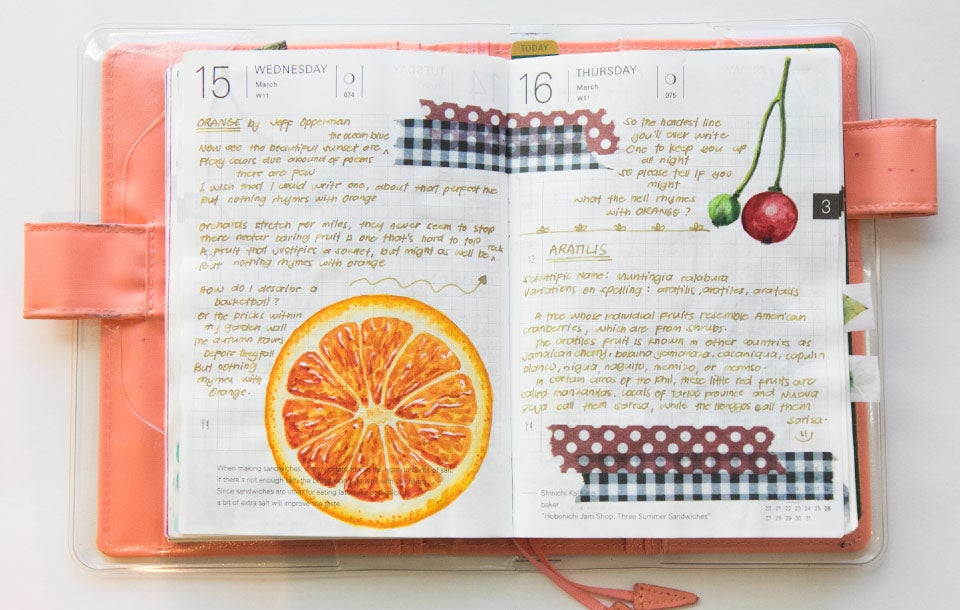 TODAY
15
WEDNESDAY
March
W11
074
ORANGE by Jeff Opperman
the ocean blue
Now see the beautiful sunset are ^
Many colors due around of poems
there are few
I wish that I could write one, about that perfect hue
But nothing rhymes with orange
Orchards stretch for miles, they never seem to stop
Their nectar baring fruit is one that's hard to top
rock
A fruit that justifies a sonnet, but might as well be ^
But nothing rhymes with orange
How do I describe a
basketball?
Or the bricks within
my garden wall
The autumn leaves
before they fall
But nothing
rhymes with
orange.
When making sandwiches, it's important to use the right amounts of salt.
If there's not enough salt the
Since sandwiches are often for eating later
a bit of extra salt will improve the taste.
16
THURSDAY
March
W11
075
So the hardest line
you'll ever write
One to keep you up
all night
So please tell if you
might
What the hell rhymes
with ORANGE?
3
12
ARATILIS
Scientific Name: Muntingia calabura
Variations on spelling: aratilis, aratiles, aratalis
A tree whose individual fruits resemble American
cranberries, which are from shrubs.
The aratiles fruit is known in other countries as
Jamaican cherry, bolaina yamanaza, cacaniqua, capulin
blanco, nigua, niguito, memizo, or memiso.
In certain areas of the Phil, these little red fruits are
called manzanitas. Locals of Tarlac province and Nueva
Ecija call them sarisa, while the Ilonggos call them
sarisa.
Shinichi
baker
"Hobonichi Jam Shop: Three Summer Sandwiches"
20 21 22 23 24 25 26
27 28 29 30 31